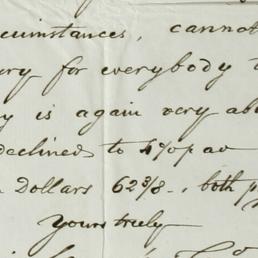 cumstances, cannot
ry for everybody t
y is again very ab
declined to 4% p an
Dollars 62 3/8 -, both p
Yours truly